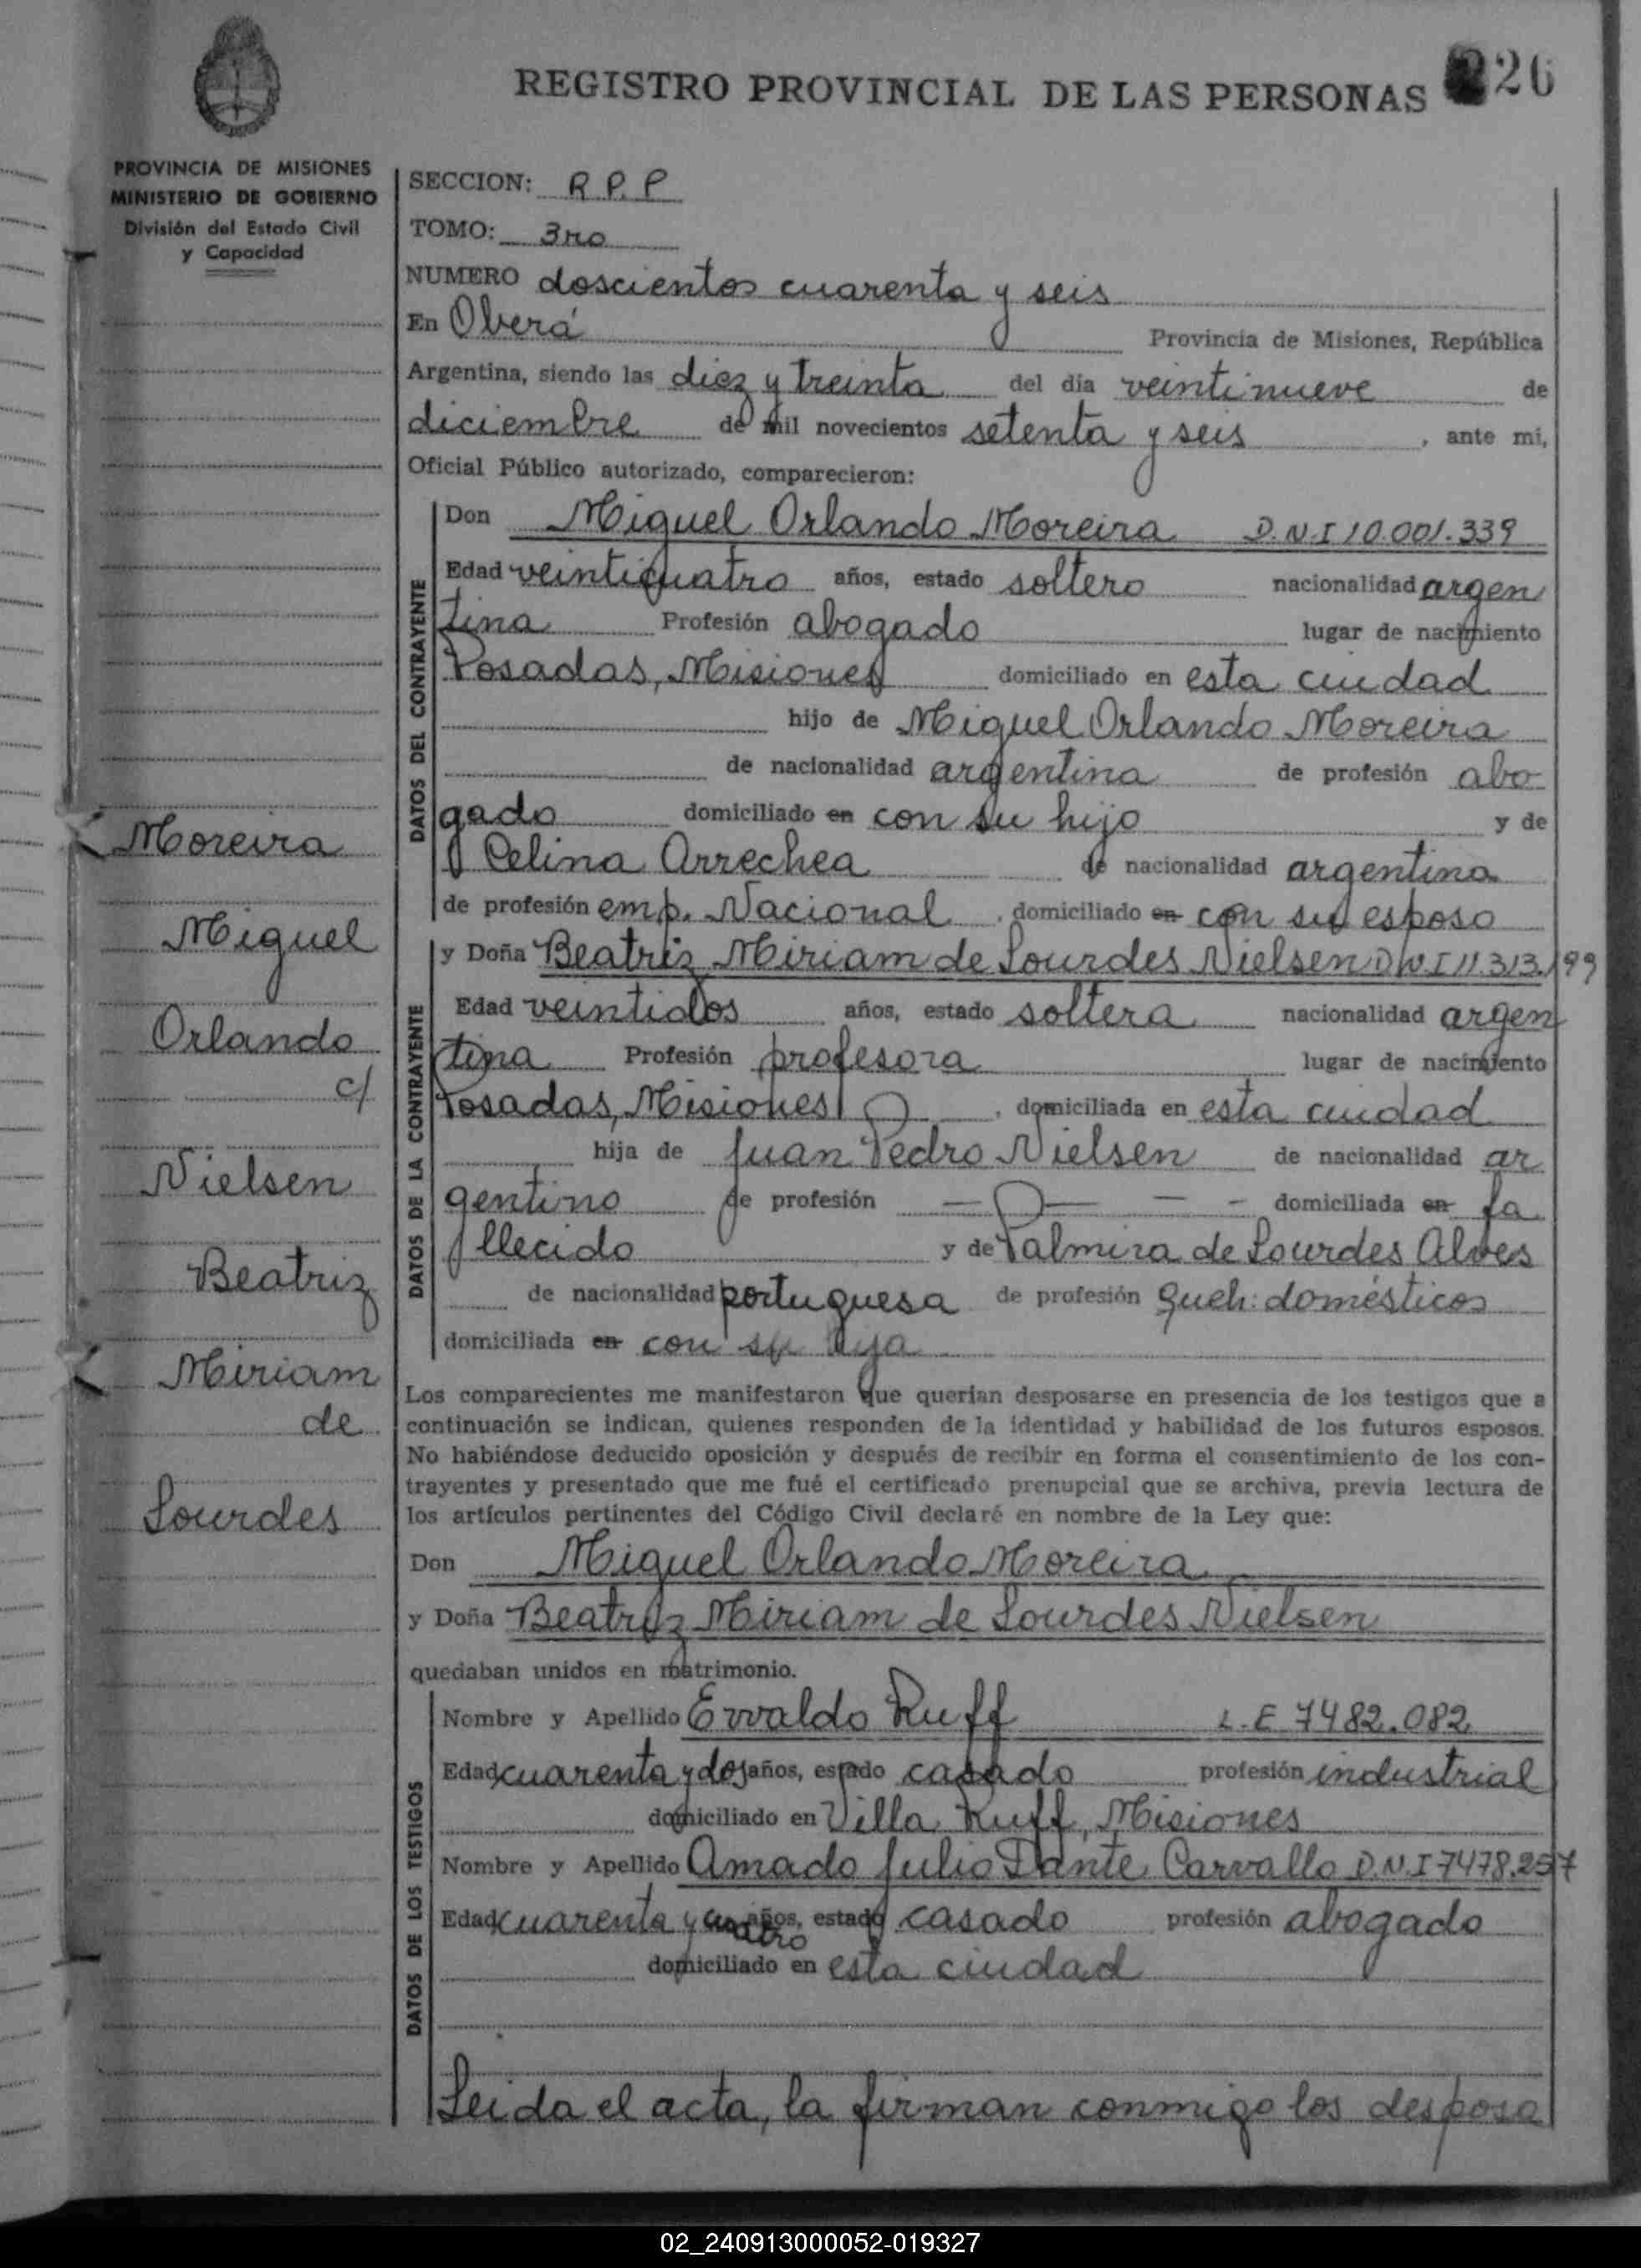 REGISTRO PROVINCIAL DE LAS PERSONAS 226
PROVINCIA DE MISIONES
MINISTERIO DE GOBIERNO
División del Estado Civil
y Capacidad
SECCION: R.P.P
TOMO: 3ro
NUMERO doscientos cuarenta y seis
En Oberá Provincia de Misiones, República
Argentina, siendo las diez y treinta del día veintinueve de
diciembre de mil novecientos setenta y seis, ante mi,
Oficial Público autorizado, comparecieron:
DATOS DEL CONTRAYENTE
Don Miguel Orlando Moreira D.N.I 10.001.339
Edad veinticuatro años, estado soltero nacionalidad argen
tina Profesión abogado lugar de nacimiento
Posadas, Misiones domiciliado en esta ciudad
hijo de Miguel Orlando Moreira
de nacionalidad argentina de profesión abo
gado domiciliado en con su hijo y de
Celina Arrechea de nacionalidad argentina
de profesión emp. Nacional, domiciliado en con su esposo
DATOS DE LA CONTRAYENTE
y Doña Beatriz Miriam de Lourdes Nielsen D.N.I 11.313.199
Edad veintidos años, estado soltera nacionalidad argen
tina Profesión profesora lugar de nacimiento
Posadas, Misiones, domiciliada en esta ciudad
hija de Juan Pedro Nielsen de nacionalidad ar
gentino de profesión — — — - domiciliada en fa
llecido y de Palmira de Lourdes Alves
de nacionalidad portuguesa de profesión queh: domésticos
domiciliada en con su hija
Los comparecientes me manifestaron que querían desposarse en presencia de los testigos que a
continuación se indican, quienes responden de la identidad y habilidad de los futuros esposos.
No habiéndose deducido oposición y después de recibir en forma el consentimiento de los con-
trayentes y presentado que me fué el certificado prenupcial que se archiva, previa lectura de
los artículos pertinentes del Código Civil declaré en nombre de la Ley que:
Don Miguel Orlando Moreira
y Doña Beatriz Miriam de Lourdes Nielsen
quedaban unidos en matrimonio.
DATOS DE LOS TESTIGOS
Nombre y Apellido Ervaldo Ruff L.E 7482.082
Edad cuarenta y dos años, estado casado profesión industrial
domiciliado en Villa Ruff, Misiones
Nombre y Apellido Amado Julio Dante Carvallo D.N.I 7478.257
Edad cuarenta y cuatro años, estado casado profesión abogado
domiciliado en esta ciudad
Leida el acta, la firman conmigo los desposa
Moreira
Miguel
Orlando
c/
Nielsen
Beatriz
Miriam
de
Lourdes
02_240913000052-019327